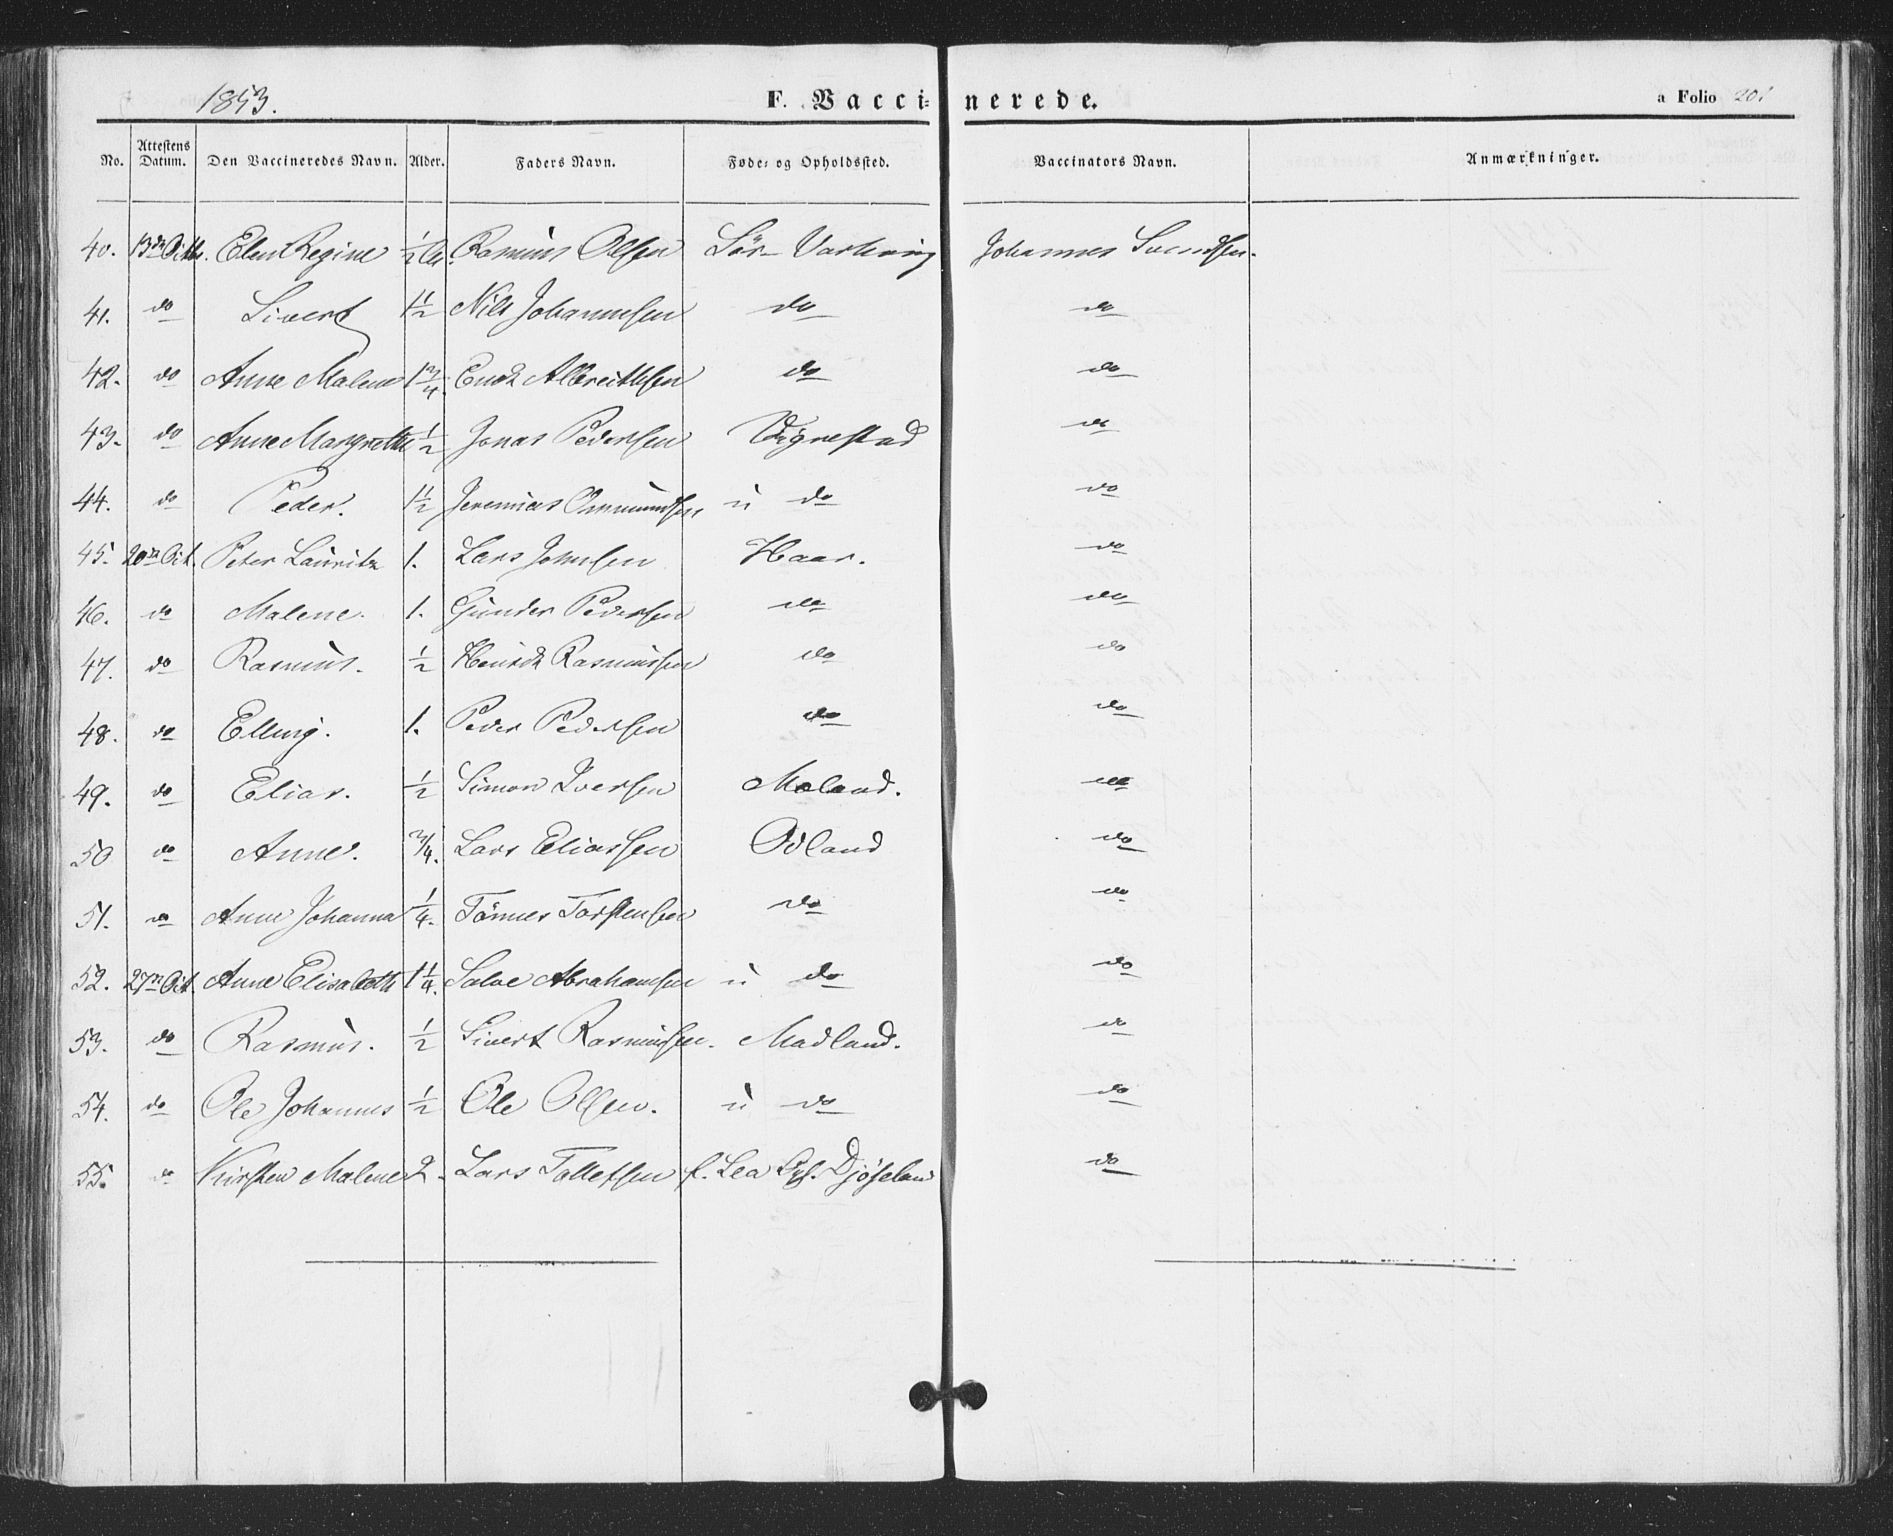 1853. F. Vaccinerede. a Folio 201
No. Attestens Datum. Den Vaccineredes Navn. Alder. Faders Navn. Føde- og Opholdssted. Vaccinators Navn. Anmærkninger.
40. 13de Octbr. Elen Regine ½ Rasmus Olsen Sör- Varhoug Johannes Svendsen.
41. do Sivert 1½ Nils Johannesen do do
42. do Anne Malene 1¾ Enok Albreithsen do do
43. do Anne Margrethe ½ Jonas Pedersen Vigrestad do
44. do Peder. 1½ Jeremias Ommundsen u do do
45. 20de Oct. Peter Lauritz 1. Lars Johnsen Haar. do
46. do Malene. 1. Gunder Pedersen do do
47. do Rasmus. ½ Henrik Rasmussen do do
48. do Elling. 1. Peder Pedersen do do
49. do Elias. ½ Simon Iversen Moland. do
50 do Anne. 3/4. Lars Eliassen Odland do
51. do Anne Johanna ¼. Tönnes Torstensen do do
52. 27de Oct. Anne Elisabeth 1¼. Salve Abrahamsen u do do
53. do Rasmus. ½ Sivert Rasmussen. Madland. do
54. do Ole Johannes ½ Ole Olsen. u do do
55. do Kirsten Malene 2. Lars Tollefsen f. Lea Djöseland do